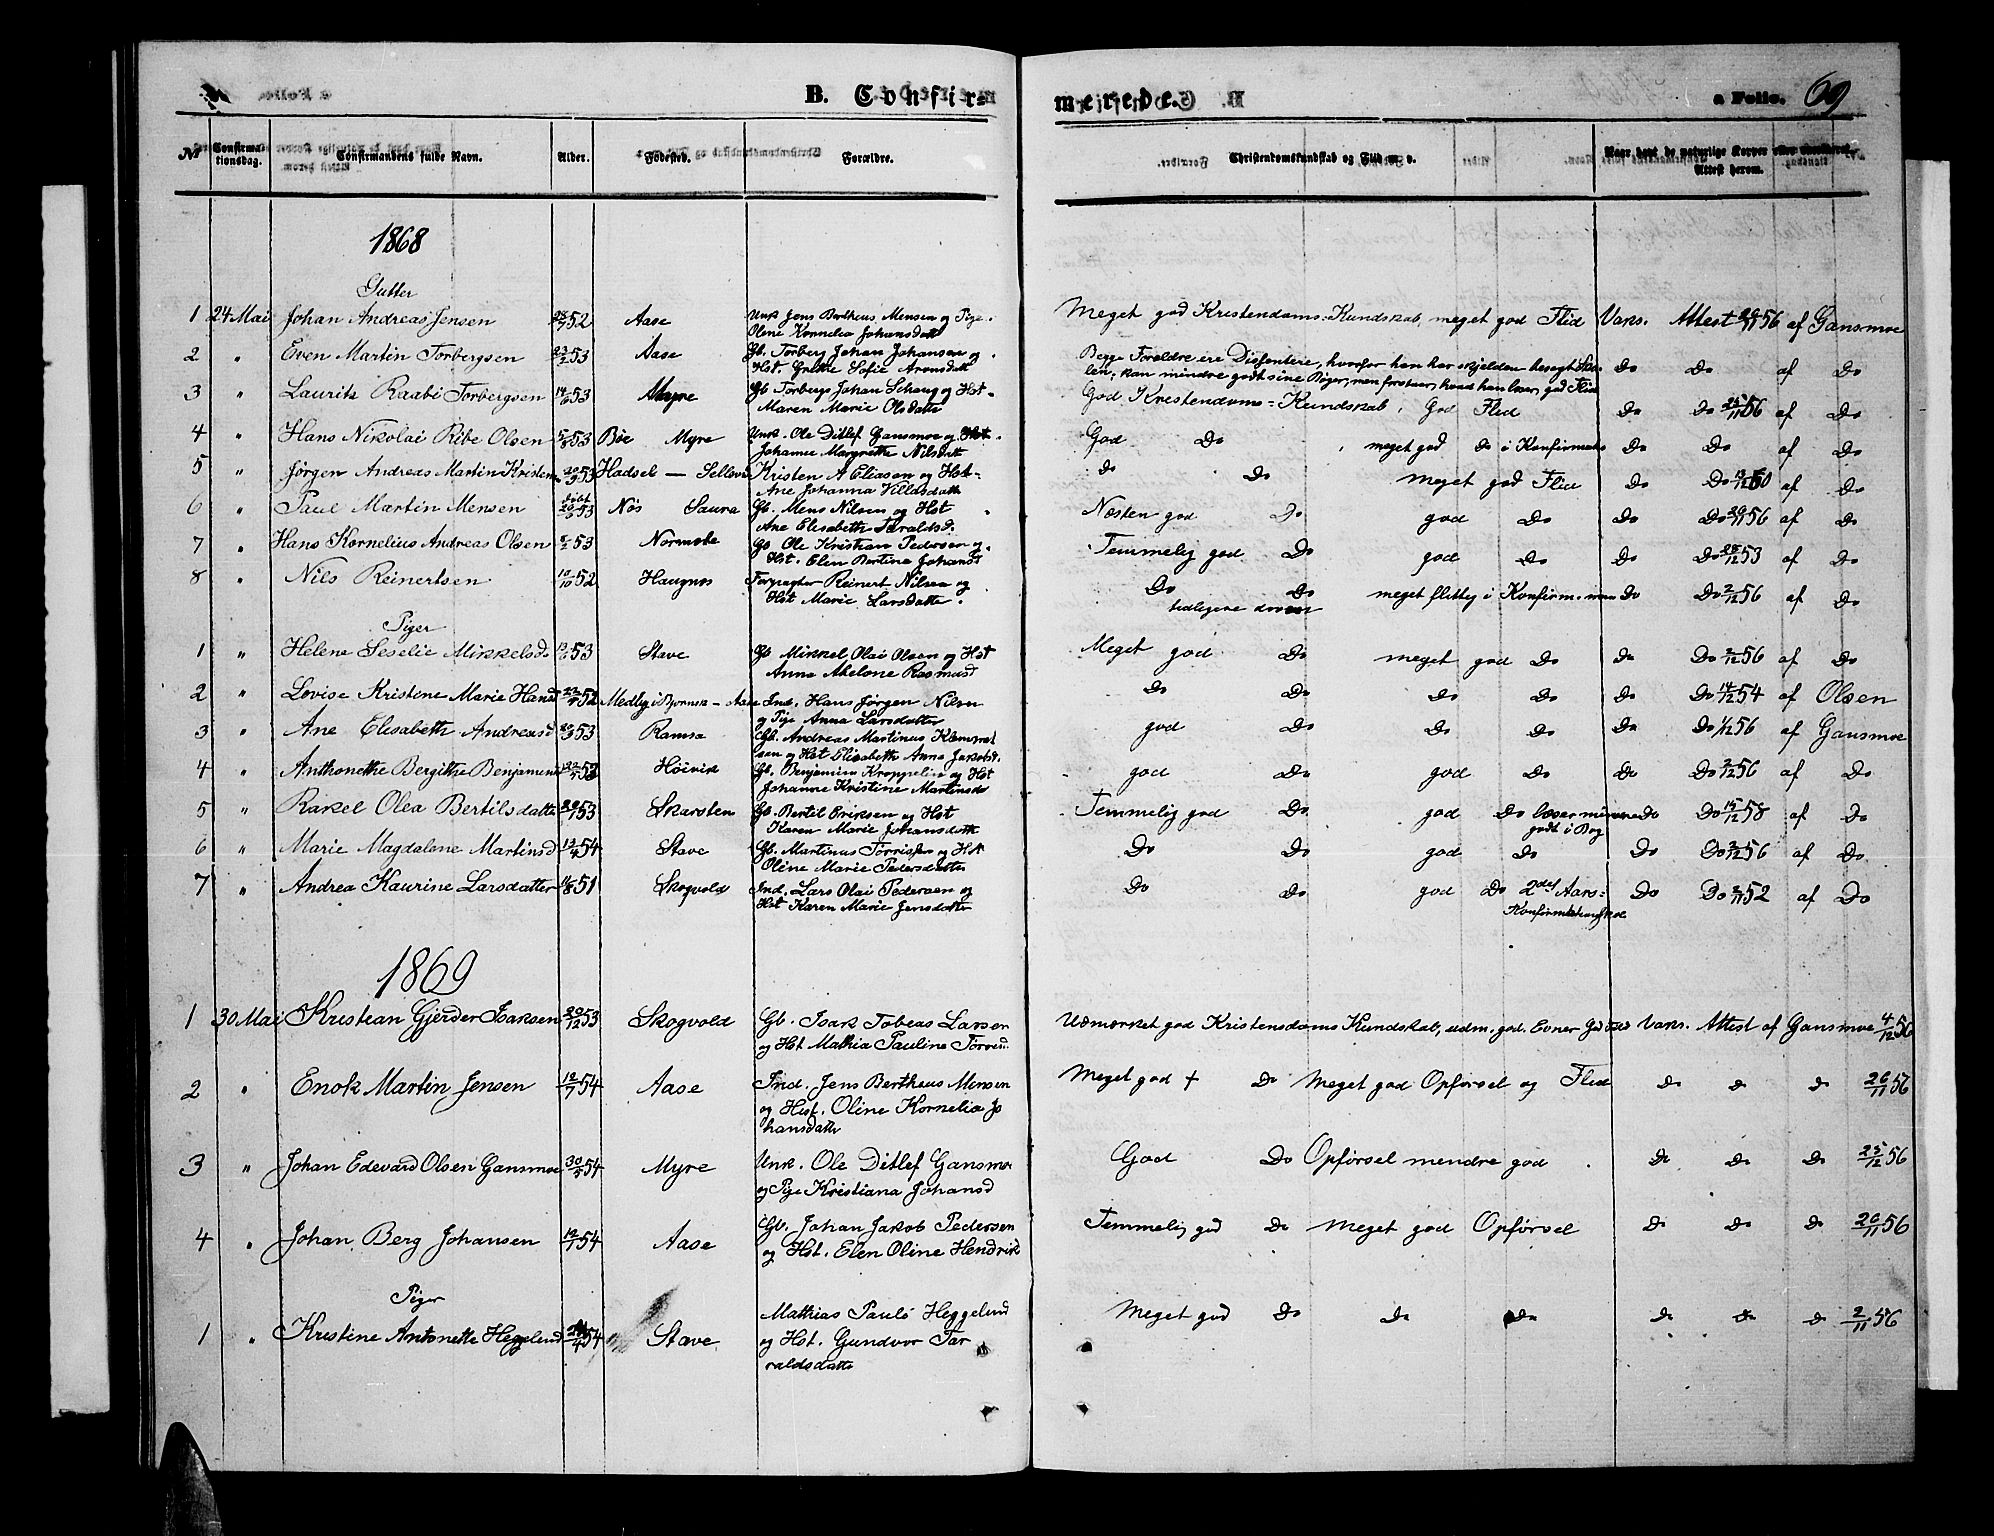 B. Confir-
merede.
a Folio. 69
No
Confirmationsdag.
Confirmandens fulde Navn.
Alder.
Fødested.
Forældre.
Christendomskundskab og Flid m. v.
Naar havt de naturlige Kopper eller vaccineret.
Attest herom.
1868
Gutter
1 24 Mai Johan Andreas Jensen 52 Aase Unk Jens Bertheus Mensen og Pige Oline Kornelia Johansdatt Meget god Kristendoms-Kundskab, meget god Flid Vacs. Attest 56 af Gansmoe
2 " Even Martin Torbergsen 53 Aase Gb. Torberg Johan Johansen og Hst. Grethe Sofie Aronsdatt Begge Foreldre ere Dissentere, hvorfor han har skjelden besøgt Skolen; kan mindre godt sine Bøger, men forstaar, hvad han læser, god Flid Do Do af Do
3 " Laurits Raabi Torbergsen 53 Myre Gb Torberg Johan Schaug og Hst Maren Marie Olsdatte God Kristendoms-Kundskab, God Flid Do Do 25/11 56 af Do
4 " Hans Nikolai Ribe Olsen 53 Bøe Myre Unk. Ole Ditlef Gansmoe og Hst. Johanne Margrethe Nilsdatt God Do meget god do i Konfirmats Do Do af Do
5 " Jørgen Andreas Martin Kristens 53 Hadsel - Kristen A Eliasen og Hst. Ane Johanna Villasdatt do Do meget god Flid Do Do af Do
6 " Paul Martin Mensen døbt 53 Saura Gb. Mens Nilsen og Hst Ane Elisabeth Taraldsd. Næsten god Do god Do Do Do 56 af Do
7 " Hans Kornelius Andreas Olsen 53 Normele Gb Ole Kristian Pedersen og Hst. Elen Bertine Johansd Temmelig god Do god Do Do Do 28/12 53 af Do
8 " Nils Reinertsen 10/10 52 Haugnes Forpagter Reinert Nilsen og Hst Marie Larsdatte. Do Do meget flittig i Konfirm. men Do Do 2/12 56 af Do
tidligere doven
Piger
1 " Helene Seselie Mikkelsd 53 Stave Gb Mikkel Olai Olsen og Hst Anna Abelone Rasmusd Meget god Do meget god Do Do Do 2/12 56 af Do
2 " Lovise Kristine Marie Hansd 52 Aase Ind. Hans Jørgen Nilsen og Pige Anna Larsdatter Do Do Do Do Do Do 14/12 54 af Olsen
3 " Ane Elisabeth Andreasd 53 Ramsa Gb. Andreas Martinus og Hst Elisabeth Anna Jakobsd. god Do Do Do Do Do 1/12 56 af Gansmoe
4 " Anthonette Bergithe Benjamins 52 Høivik Gb. Benjamin og Hst Johanne Kristine Martinsd god Do god Do Do Do 2/12 56 af Do
5 " Rakel Olea Bertilsdatte 53 Skarsten Gb. Bertil Eriksen og Hst Karen Marie Johansdatte Temmelig god Do god Do læser mindre godt i Bog Do Do 15/12 58 af Do
6 " Marie Magdalene Martinsd 54 Stave Gb. Martinus Torrissen og Hst Oline Marie Pedersdatte Do Do god Do Do Do 2/12 56 af Do
7 " Andrea Kaurine Larsdatter 51 Skogvold Ind. Lars Olai Pedersen og Hst Karen Marie Jensdatte Do Do god Do 2det Aars- Do Do 52 af Do
1869
1 30 Mai Kristian Gjerder Isaksen 20/12 53 Skogvold Gb. Isak Tobias Larsen og Hst Mathia Pauline Udmærket god Kristensdoms Kundskab, udm. god. Evner God Flid Vacs. Attest af Gansmoe 4/12 56
2 " Enok Martin Jensen 12/7 54 Aase Ind. Jens Bertheus Mensen og Hst. Oline Kornelia Johansdatte Meget god + Do Meget god Opførsel og Flid Do Do Do 26/11 56
3 " Johan Edevard Olsen Gansmoe 54 Myre Unk. Ole Ditlef Gansmoe og Pige Kristiana Johansd God Do Opførsel mendre god Do Do Do 25/12 56
4 " Johan Berg Johansen 54 Aase Gb. Johan Jakob Pedersen og Hst. Elen Oline Hendrik Temmelig god Do Meget god Opførsel Do Do Do 26/11 56
Piger
1 " Kristine Antonette Heggelund 54 Stave Mathias Pauls Heggelund og Hst. Gundvor Tarraldsdatte Meget god Do Do Do Do Do Do 2/11 56